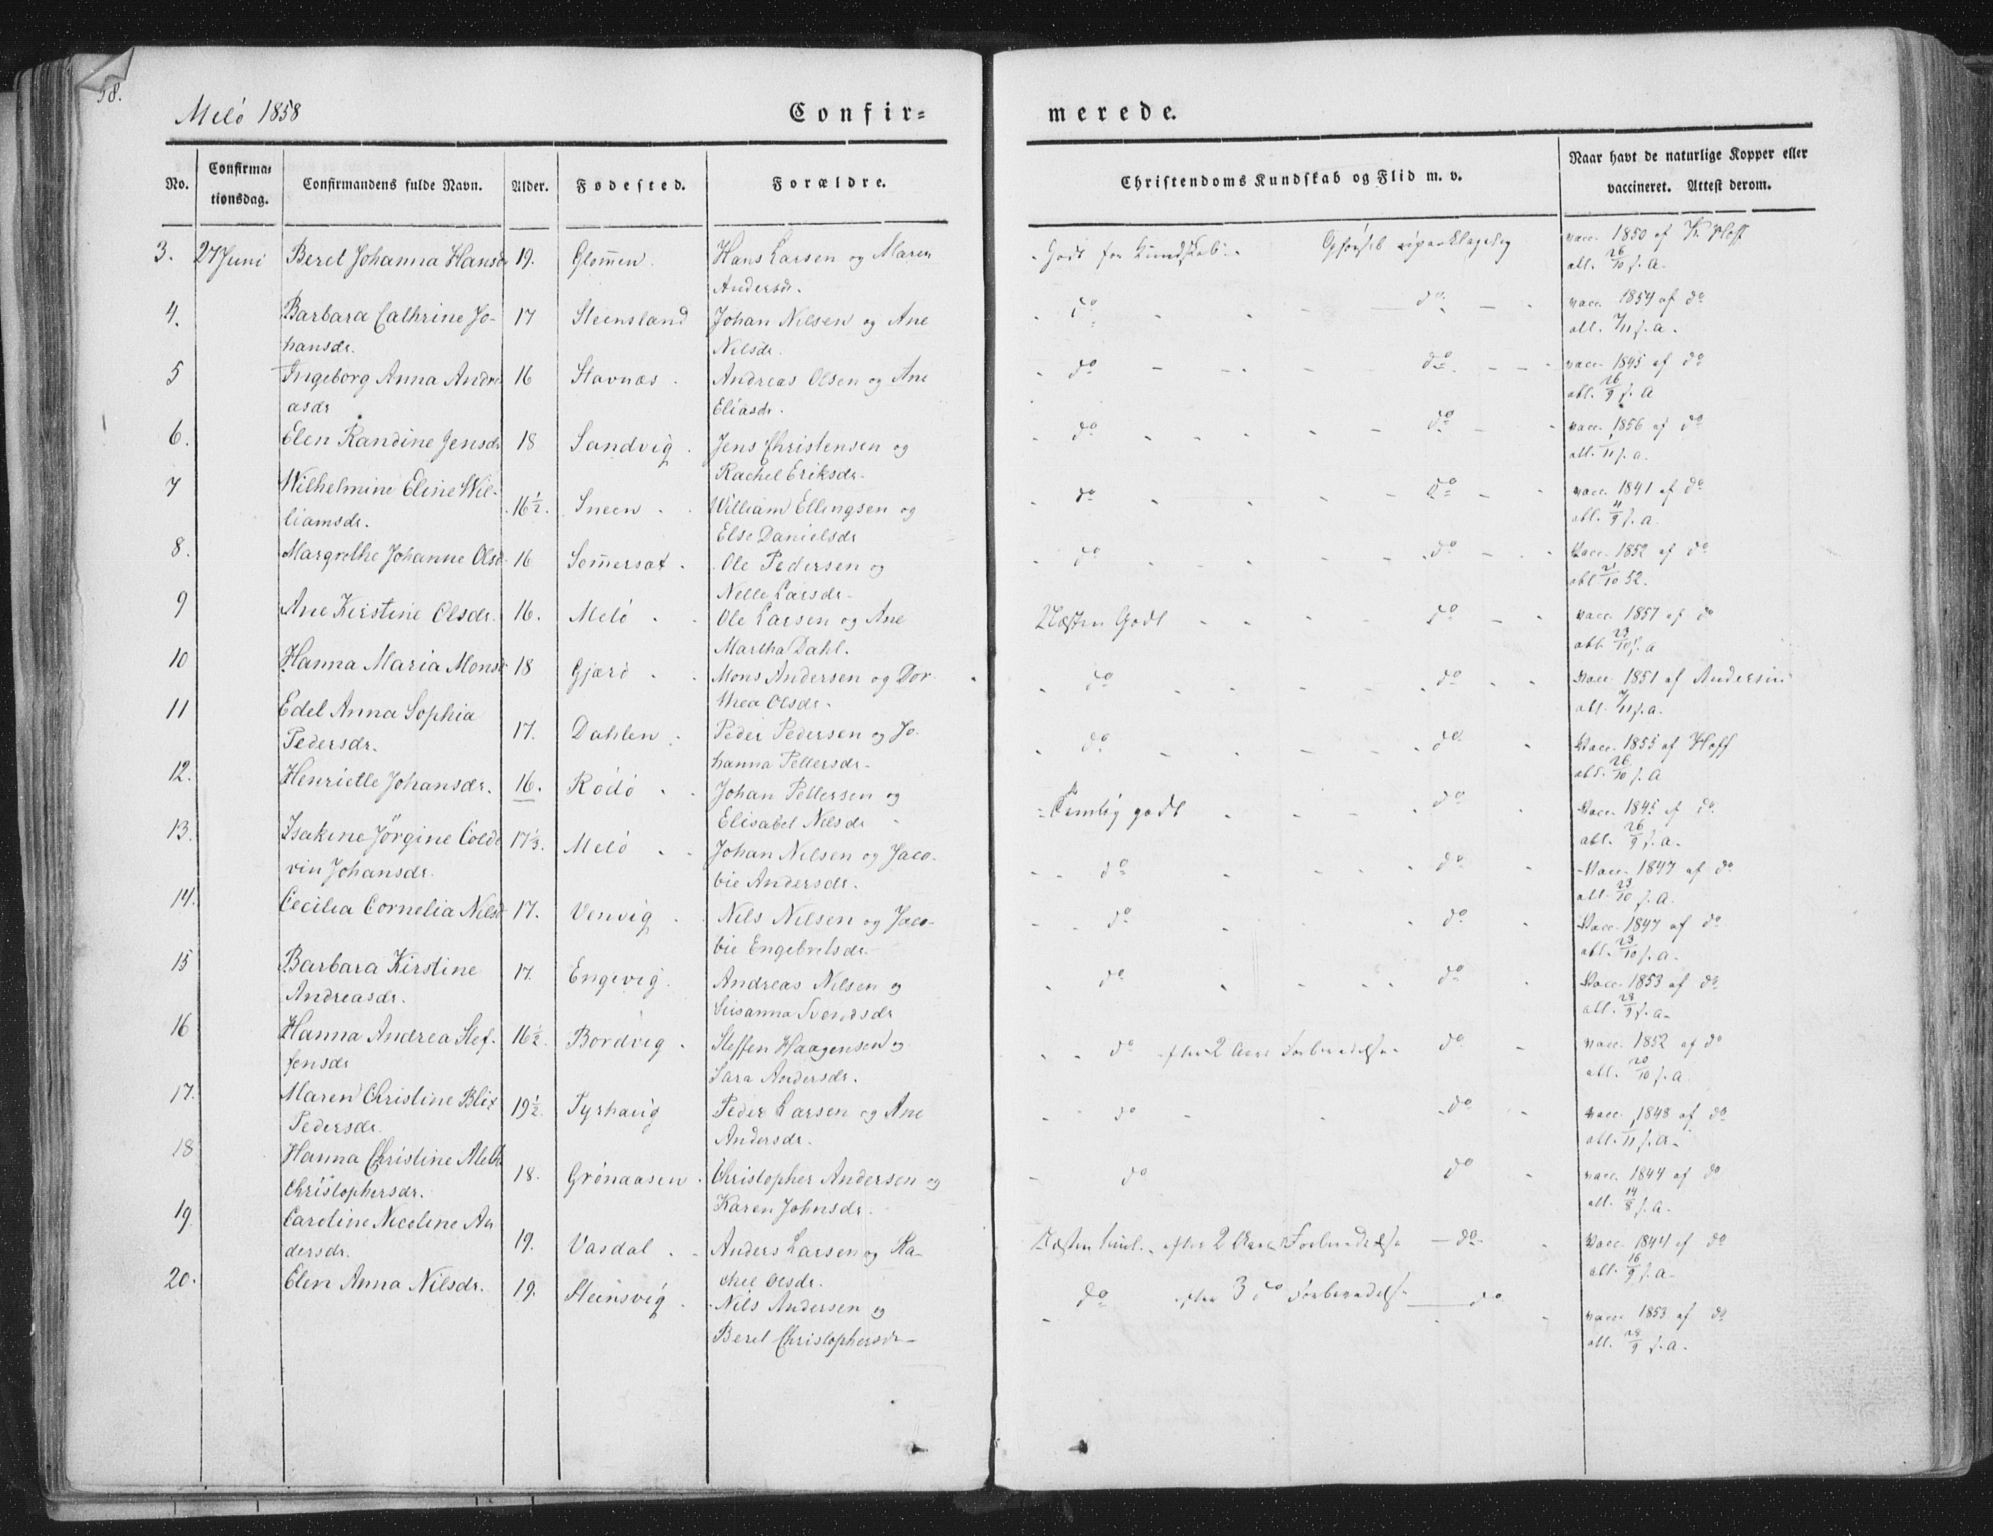 58.
Melö 1858
Confir-
merede.
No.
Confirma-
tionsdag.
Confirmandens fulde Navn.
Alder.
Fødested.
Forældre.
Christendoms Kundskab og Flid m. v.
Naar havt de naturlige Kopper eller
vaccineret. Attest derom.
3. 27 Juni Beret Johanna Hansdr 19. Glom̄en. Hans Larsen og Maren
Andersdr.
Godt for Kundskab. vacc. 1850 af Hoff
att. 26/10 s. A.
4. Barbara Cathrine Jo-
hansdr. 17 Steensland Johan Nilsen og Ane
Nilsdr.
do do vacc. 1854 af do
att. 7/11 s. a.
5 Ingeborg Anna Andre
asdr 16 Stavnæs. Andreas Olsen og Ane
Eliasdr.
do do vacc. 1845 af do
att. 26/9 s. A
6. Elen Randine Jensdr 18 Sandvig. Jens Christensen og
Rachel Eriksdr.
do do vacc. 1856 af do
att. 1/11 s. a.
7 Wilhelmine Eline Wil-
liamsdr. 16½. Sneen. William Ellingsen og
Else Danielsdr
do do vacc. 1841 af do
att. 4/9 s. a.
8. Margrethe Johanne Olsd. 16 Som̄ersæt. Ole Pedersen og
Nelle Larsdr.
do do Vacc. 1852 af do
att 21/10 52.
9 Ane Kirstine Olsdr. 16. Melö. Ole Larsen og Ane
Martha Dahl.
Næsten Godt do vacc. 1857 af do
att. 23/10 s. a
10 Hanna Maria Monsd 18 Gjærö. Mons Andersen og Dor-
thea Olsdr.
do do vacc. 1851 af Andersen
att. 7/11 s. a.
11 Edel Anna Sophia
Pedersdr. 17. Dahlen. Peder Pedersen og Jo-
hanna Pettersdr.
do do Vacc. 1855 af Hoff
att. 26/10 s. A
12. Henriette Johansdr. 16. Rödö. Johan Pettersen og
Elisabet Nilsdr
Temlig godt do Vacc. 1845 af do
att. 26/9 s. a.
13. Isakine Jørgine Coldе
vin Johansdr. 17⅓. Melö. Johan Nilsen og Jaco-
bie Andersdr.
do do Vacc. 1847 af do
att. 23/10 s. A.
14. Cecilia Cornelia Nilsd 17. Venvig. Nils Nilsen og Jaco-
bie Engebretsdr.
do do Vacc. 1847 af do
att. 23/10 s. a.
15 Barbara Kirstine
Andreasdr. 17. Engevig. Andreas Nilsen og
Susanna Svendsdr
do do Vacc. 1853 af do
att. 28/9 s. a.
16 Hanna Andrea Stef-
fensdr 16½. Bordvig. Steffen Haagensen og
Sara Andersdr.
do efter 2 Aars Forberedelse do vacc. 1852 af do
att. 20/10 s. a.
17. Maren Christine Blix
Pedersdr. 19½. Tyrhaug Peder Larsen og Ane
Andersdr.
do do vacc. 1848 af do
att. 1/11 s. a.
18 Hanna Christine
Christophersdr. 18. Grönaasen. Christopher Andersen og
Karen Johnsdr.
do do vacc. 1844 af do
att. 14/8 s. a.
19. Caroline Nicoline An
dersdr. 19. Vasdal. Anders Larsen og Ra-
chel Olsdr.
Næsten efter 2 Aars Forberedelse do Vacc. 1844 af do
att. 16/9 s. a.
20. Elen Anna Nilsdr. 19. Steinsvig. Nils Andersen og
Beret Christophersdr
do efter 3 do Forberedelse do vacc. 1853 af do
att. 28/9 s. a.